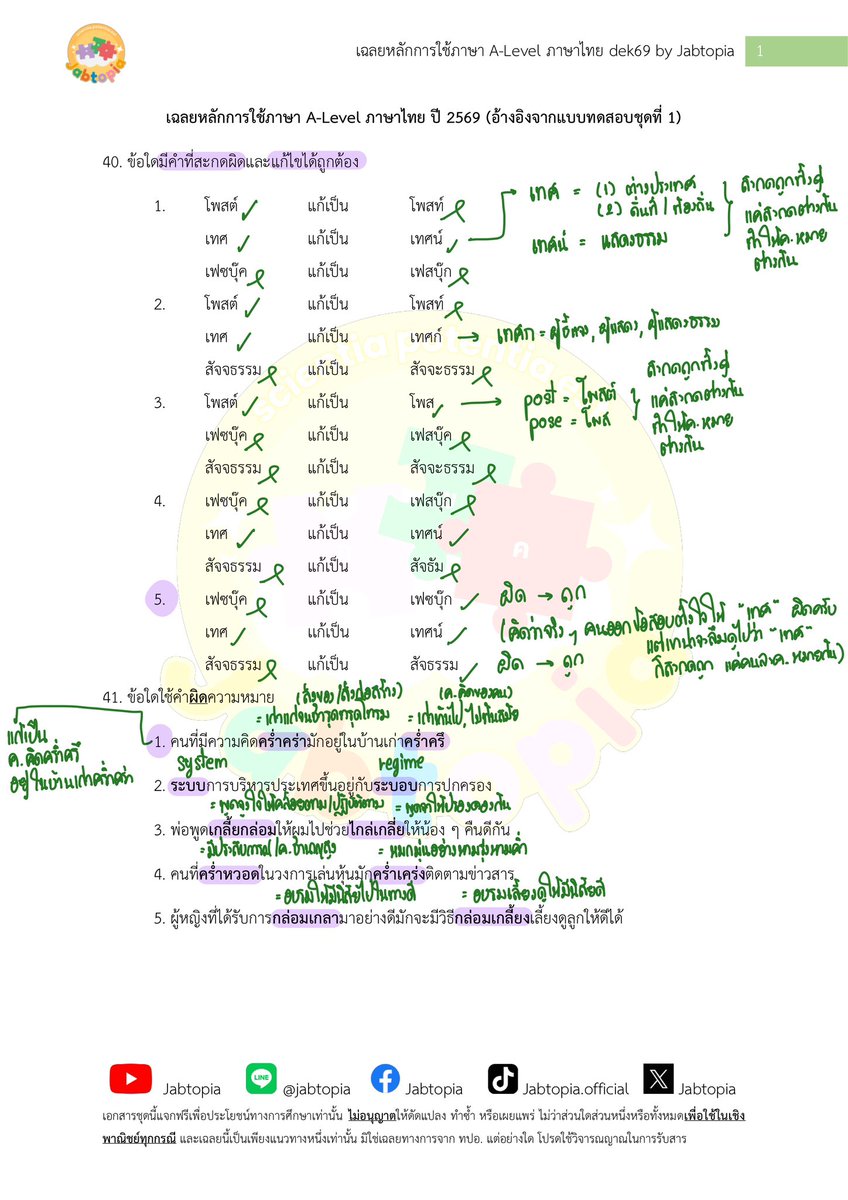 Jabtopia
เฉลยหลักการใช้ภาษา A-Level ภาษาไทย dek69 by Jabtopia 1
เฉลยหลักการใช้ภาษา A-Level ภาษาไทย ปี 2569 (อ้างอิงจากแบบทดสอบชุดที่ 1)
40. ข้อใดมีคำที่สะกดผิดและแก้ไขได้ถูกต้อง
1. โพสต์ แก้เป็น โพสท์
เทศ แก้เป็น เทศน์
เฟซบุ๊ค แก้เป็น เฟสบุ๊ก
เทศ = (1) ต่างประเทศ
(2) ถิ่นที่ / ท้องถิ่น
เทศน์ = แสดงธรรม
สะกดถูกทั้งคู่
แค่สะกดต่างกัน
ทำให้ค.หมาย
ต่างกัน
2. โพสต์ แก้เป็น โพสท์
เทศ แก้เป็น เทศก์ → เทศก = ผู้ชี้แจง, ผู้แสดง, ผู้แสดงธรรม
สัจจธรรม แก้เป็น สัจจะธรรม
3. โพสต์ แก้เป็น โพส → post = โพสต์
pose = โพส
สะกดถูกทั้งคู่
แค่สะกดต่างกัน
ทำให้ค.หมาย
ต่างกัน
เฟซบุ๊ค แก้เป็น เฟสบุ๊ค
สัจจธรรม แก้เป็น สัจจะธรรม
4. เฟซบุ๊ค แก้เป็น เฟสบุ๊ก
เทศ แก้เป็น เทศน์
สัจจธรรม แก้เป็น สัจธัม
5. เฟซบุ๊ค แก้เป็น เฟซบุ๊ก ผิด → ถูก
เทศ แก้เป็น เทศน์ (คิดว่าจริง ๆ คนออกข้อสอบตั้งใจให้ "เทศ" ผิดครับ
แต่เขาน่าจะลืมดูไปว่า "เทศ"
ก็สะกดถูก แค่คนละค.หมายกัน)
สัจจธรรม แก้เป็น สัจธรรม ผิด → ถูก
41. ข้อใดใช้คำผิดความหมาย
(สิ่งของ/สิ่งก่อสร้าง) (ค.คิดของคน)
= เก่าแก่จนชำรุดทรุดโทรม = เก่าเกินไป, ไม่ทันสมัย
1. คนที่มีความคิดคร่ำคร่ามักอยู่ในบ้านเก่าคร่ำครึ
แก้เป็น
ค.คิดคร่ำครึ
อยู่ในบ้านเก่าคร่ำคร่า
system regime
2. ระบบการบริหารประเทศขึ้นอยู่กับระบอบการปกครอง
= พูดจูงใจให้คล้อยตาม/ปฏิบัติตาม = พูดจาให้ปรองดองกัน
3. พ่อพูดเกลี้ยกล่อมให้ผมไปช่วยไกล่เกลี่ยให้น้อง ๆ คืนดีกัน
= มีประสบการณ์/ค.ชำนาญสูง = หมกมุ่นอย่างหามรุ่งหามค่ำ
4. คนที่คร่ำหวอดในวงการเล่นหุ้นมักคร่ำเคร่งติดตามข่าวสาร
= อบรมให้มีนิสัยไปในทางดี = อบรมเลี้ยงดูให้มีนิสัยดี
5. ผู้หญิงที่ได้รับการกล่อมเกลามาอย่างดีมักจะมีวิธีกล่อมเกลี้ยงเลี้ยงดูลูกให้ดีได้
Jabtopia @jabtopia Jabtopia Jabtopia.official Jabtopia
เอกสารชุดนี้แจกฟรีเพื่อประโยชน์ทางการศึกษาเท่านั้น ไม่อนุญาตให้ดัดแปลง ทำซ้ำ หรือเผยแพร่ ไม่ว่าส่วนใดส่วนหนึ่งหรือทั้งหมดเพื่อใช้ในเชิง
พาณิชย์ทุกกรณี และเฉลยนี้เป็นเพียงแนวทางหนึ่งเท่านั้น มิใช่เฉลยทางการจาก ทปอ. แต่อย่างใด โปรดใช้วิจารณญาณในการรับสาร